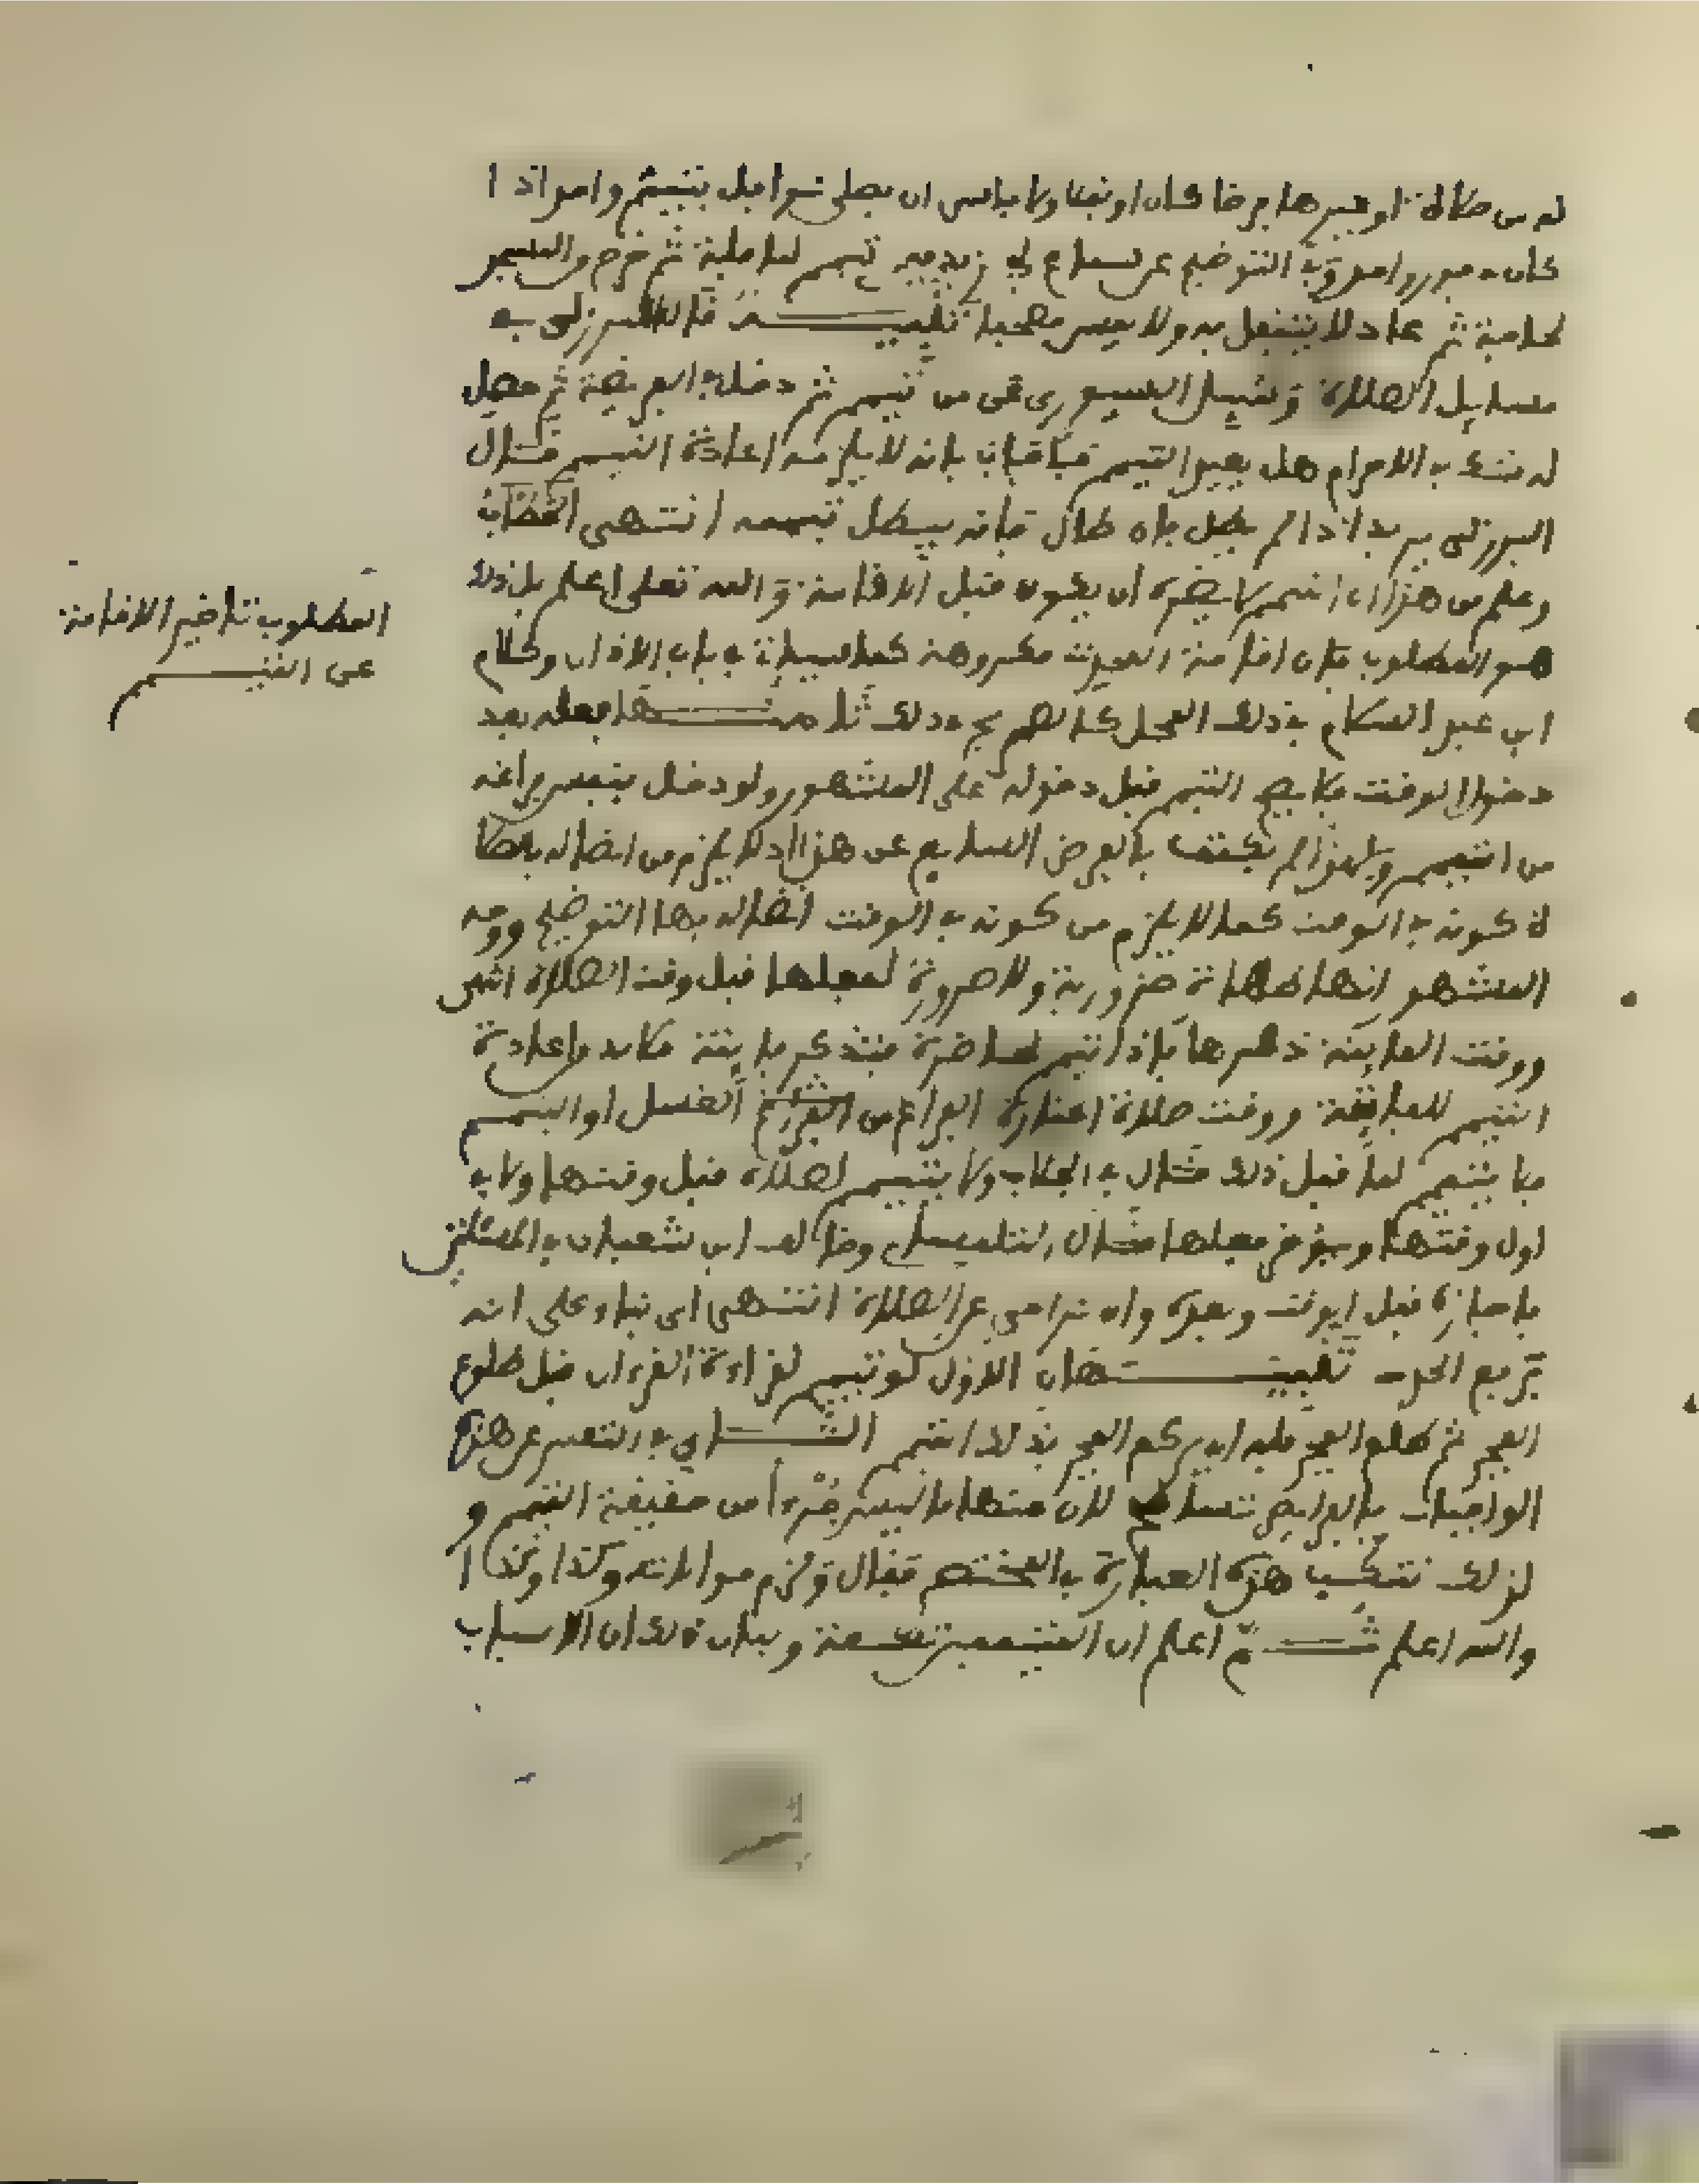 له من صلاة او غيرها فرضا كان او نفلا ولا باس ان يصلي نوافل بتيمم واحد اذا
كان في فور واحد وفي التوضيح عن سماع ابي زيد فيمن تيمم لنافلة ثم خرج من المسجد
لحاجة ثم عاد لا يتنفل به ولا يمس مصحفا تنبيه قال البرزلي في
مسايل الصلاة وسئل السيوري عن من تيمم ثم دخل في الفريضة ثم حصل
له شك في الاحرام هل يعيد التيمم فاجاب بانه لا يلزمه اعادة التيمم قال
البرزلي يريد اذا لم يطل فان طال فانه يبطل تيممه انتهى
وعلم من هذا ان التيمم لا يضره ان يكون قبل الاقامة والله تعلى اعلم بل ذلك
هو المطلوب فان اقامة المحدث مكروهة كما سياتي في باب الاذان وكلام
ابن عبد السلام في ذلك المحل كالصريح في ذلك ثالثها فعله بعد
دخول الوقت فلا يصح التيمم قبل دخوله على المشهور ولو دخل بنفس فراغه
من التيمم ولهذا لم يكتف بالفرض السابع عن هذا اذ لا يلزم من اتصاله بالصلا
ة كونه في الوقت كما لا يلزم من كونه في الوقت اتصاله بها التوضيح ووجه
المشهور انها طهارة ضرورية ولا ضرورة لفعلها قبل وقت الصلاة انتهى
ووقت الفايتة ذكرها فاذا تيمم لحاضرة فتذكر فايتة فلابد من اعادة
التيمم للفايتة ووقت صلاة الجنازة الفراغ من الغسل او التيمم
فلا يتيمم لها قبل ذلك قال في الجلاب ولا يتيمم لصلاة قبل وقتها ولا في
اول وقتها ويؤخر فعلها قال التلمساني وخالف ابن شعبان في المسئلتين
فاجازه قبل الوقت وبعده وان تراخى عن الصلاة انتهى اي بناء على انه
يرفع الحدث تنبيهان الاول لو تيمم لقراءة القرءان قبل طلوع
الفجر ثم طلع الفجر فله ان يركع الفجر بذلك التيمم الثاني في التعبير عن هذه
الواجبات بالفرايض تسامح لان منها ما ليس جزءا من حقيقة التيمم و
لذلك نكب هذه العبارة في المختصر فقال ولزم موالاته وكذا وكذا
والله اعلم ثم اعلم ان المتيممين تسعة وبيان ذلك ان الاسباب
المطلوب تاخير الاقامة
عن التيمم